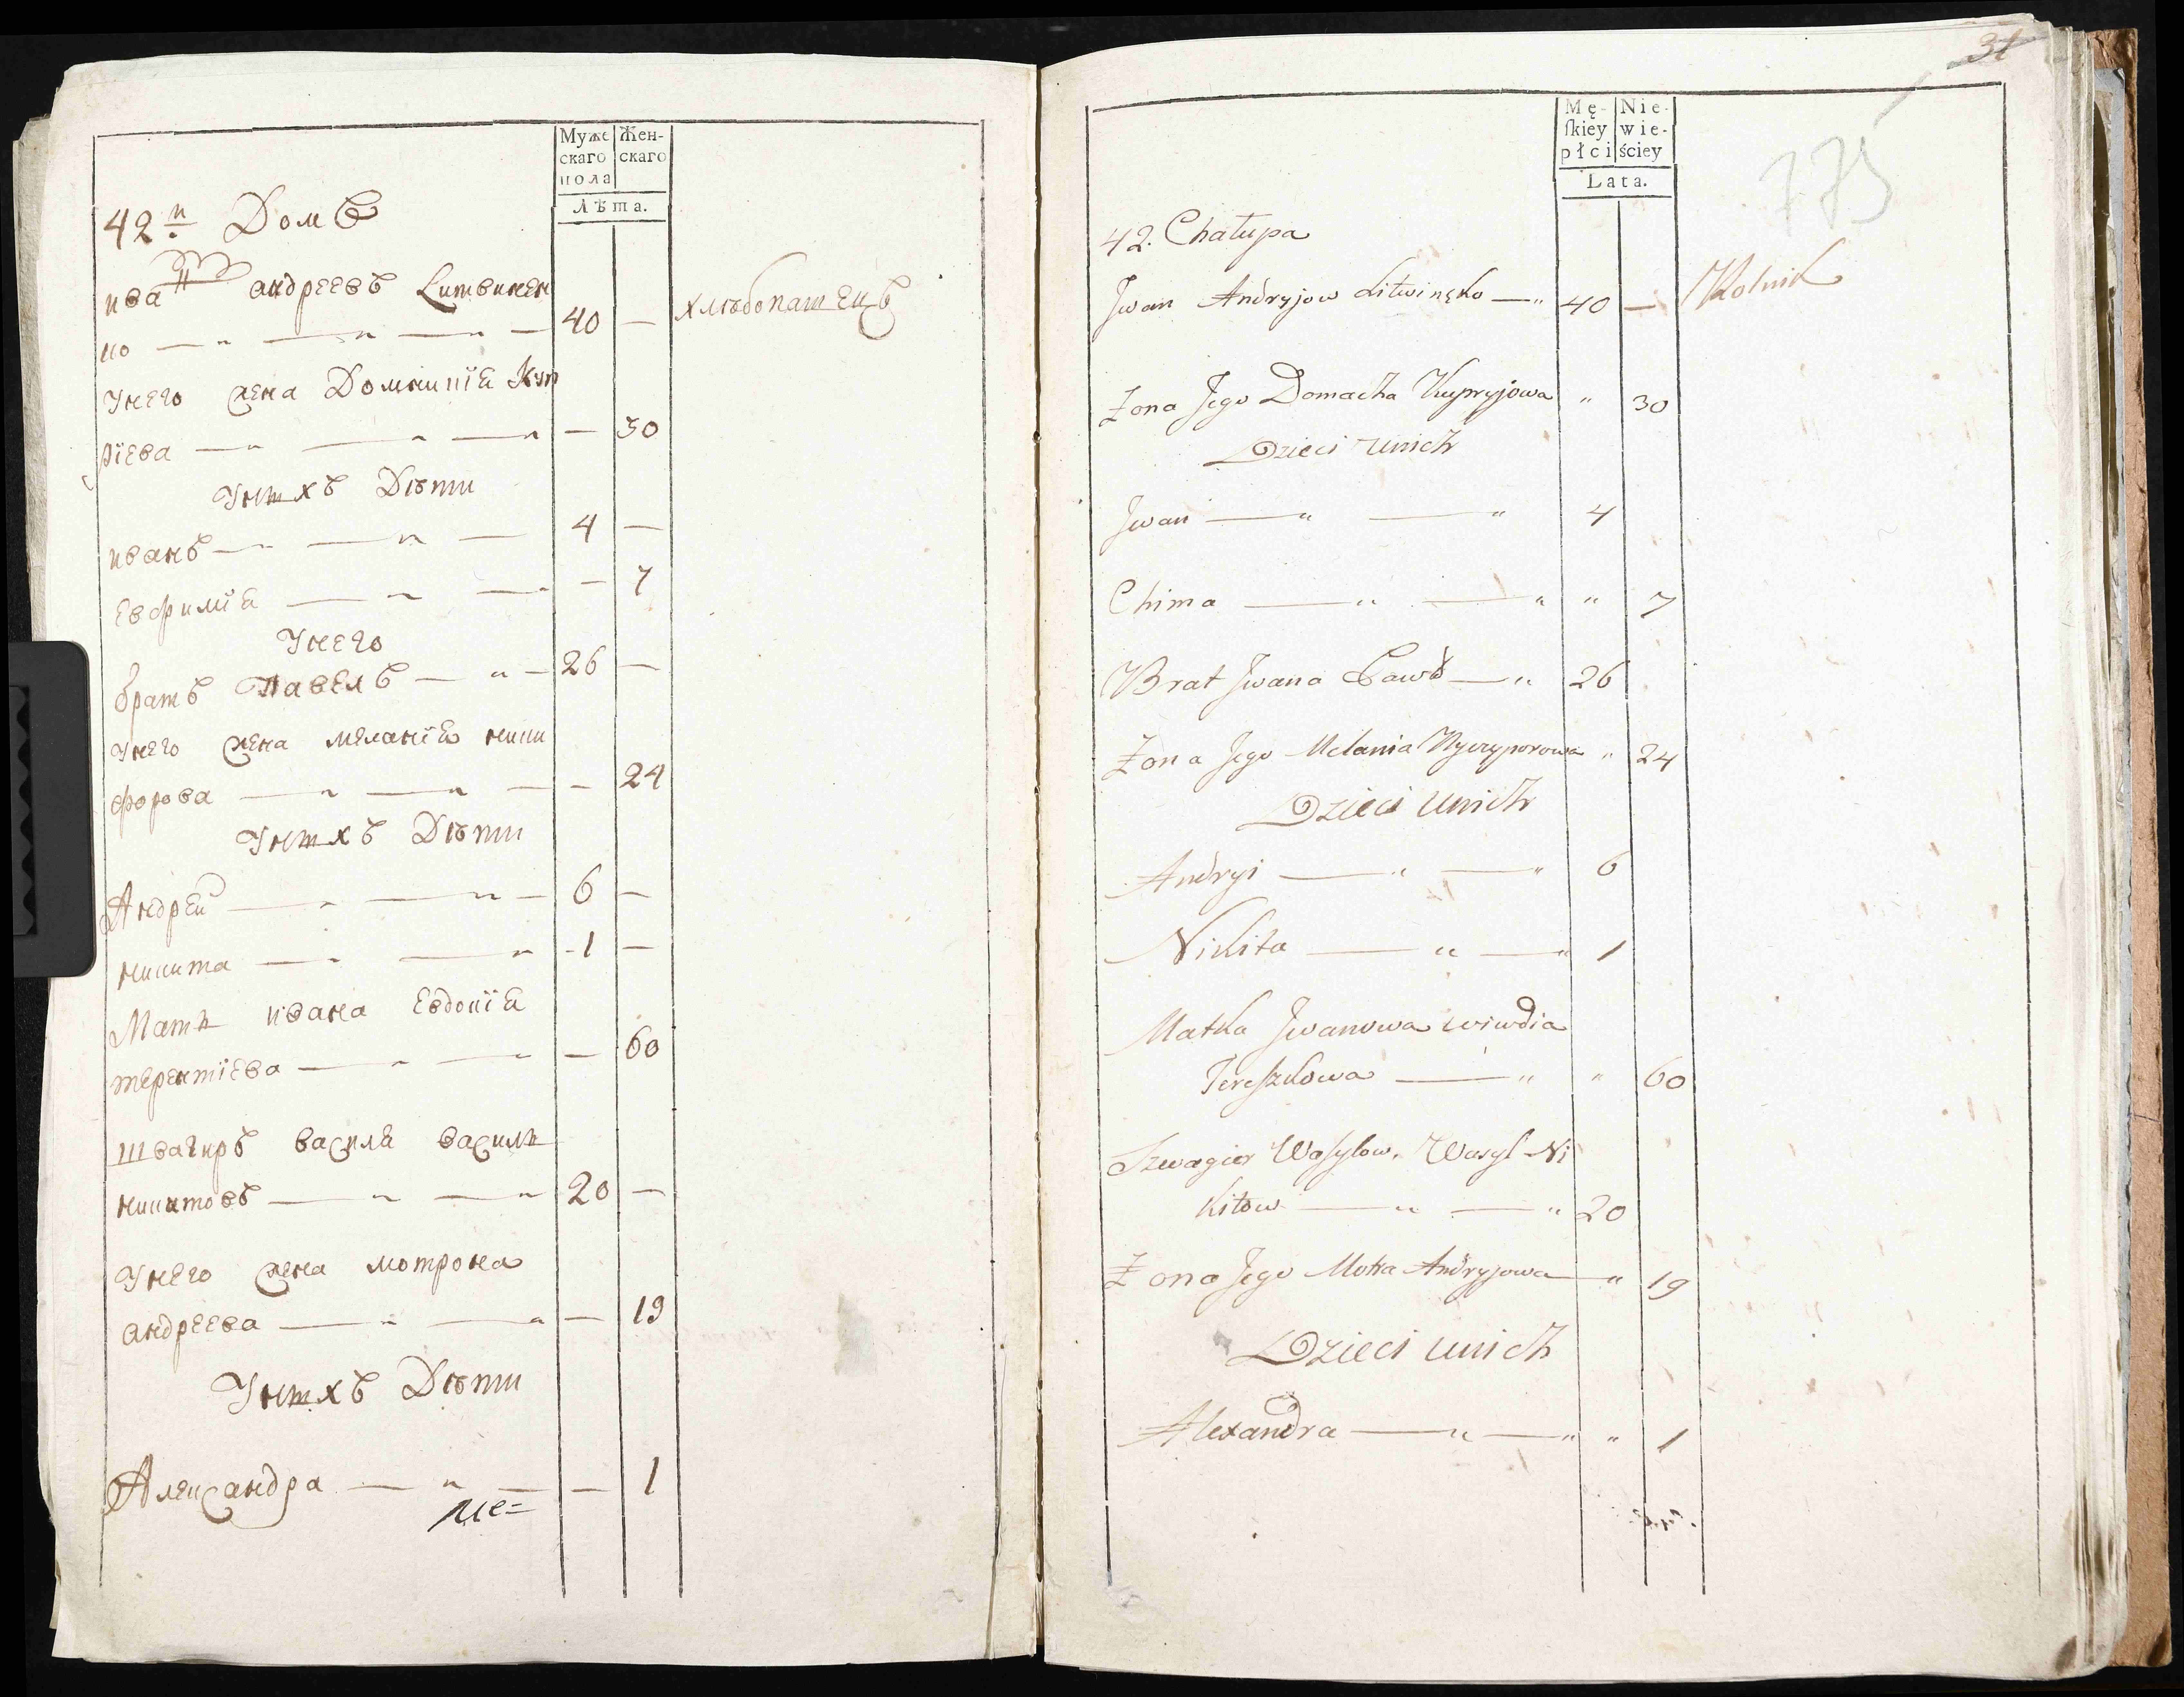 Муже Жен-
скаго скаго
пола
Лѣта.
42й Домъ
иваН андреевъ Литвинен
ко — " — " — " — 40 — хлѣбопашецъ
Унего жена Домникїа Куп
рїева — " — " — " — 30
Унихъ Дѣти
иванъ — " — " — 4 —
Евфимїа — " — " — 7
Унего
братъ Павелъ — " — 26 —
Унего жена меланїа ники
форова — " — " — — 24
Унихъ Дѣти
Андрей — " — " — 6 —
никита — " — " - 1 —
Мать ивана Евдокїа
терентїева — " — " — 60
швагиръ василя василь
никитовъ — " — " 20 —
Унего жена мотрона
андреева — " — " — 19
Унихъ Дѣти
Александра — " — — 1
31
Mę- Nie-
ſkiey wie-
płci ściey
Lata.
775
42. Chałupa
Jwan Andryjow Litwinęko — " 40 — Rolnik
Żona Jego Domachа Kupryjowa " 30
Dzieci unich
Jwan — " — " 4
Chima — " — " " 7
Brat Jwana Pawło — " 26
Żona Jego Melania Nyczyporowa " 24
Dzieci unich
Andryi — " — " 6
Nikita — " — " 1
Matka Jwanowa wiwdia
Tereszkowa — " " 60
Szwagier Wasylow. Wasyl Ni
kitow — " — " 20
Żona Jego Motra Andryjowa — " 19
Dzieci unich
Alexandra — " — " " 1